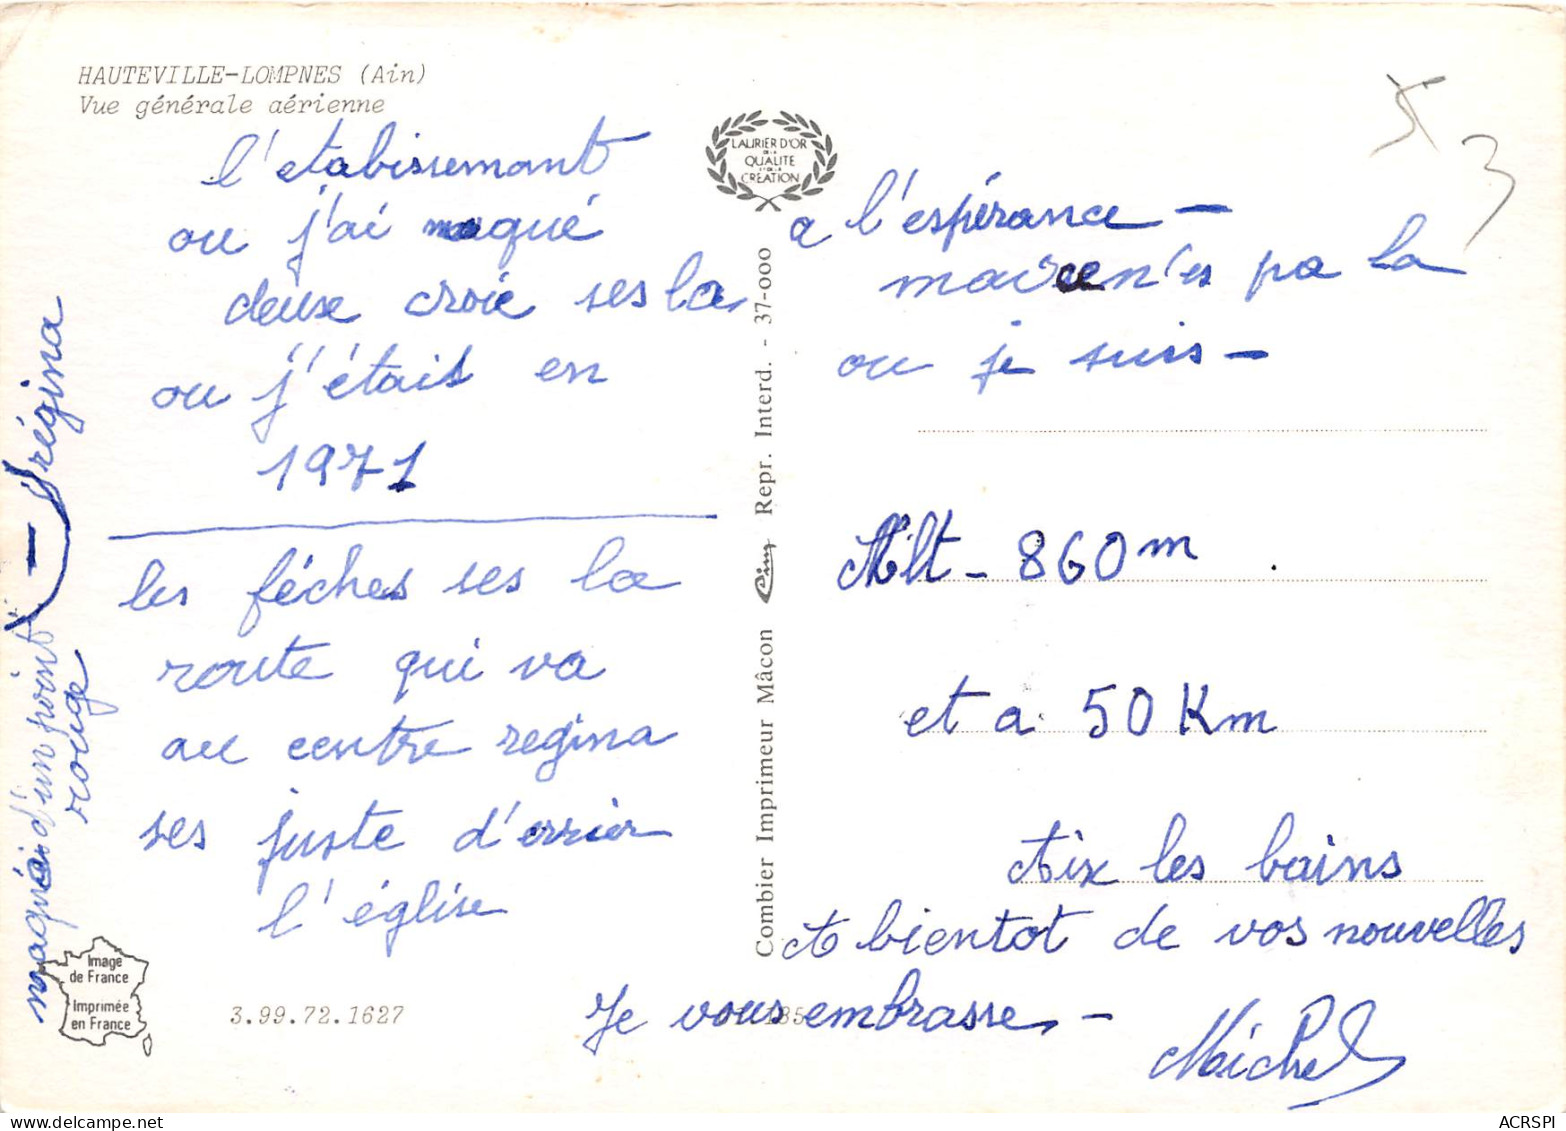 HAUTEVILLE-LOMPNES (Ain)
Vue générale aérienne
l'etabissemant
ou j'ai maqué
deuse croie ses la
ou j'étais en
1971
les féches ses la
route qui va
au centre regina
ses juste d'errier
l'église
maquéai d'un point rouge - régina
Image
de France
Imprimée
en France
3.99.72.1627
LAURIER D'OR
DE LA
QUALITE
ET DE LA
CREATION
Combier Imprimeur Mâcon Cim Repr. Interd. - 37-000
5 3
a l'espérance -
mais ce n'es pa la
ou je suis -
Alt - 860 m
et a 50 Km
Aix les bains
A bientot de vos nouvelles
Je vous embrasse, -
Michel
ACRSPI